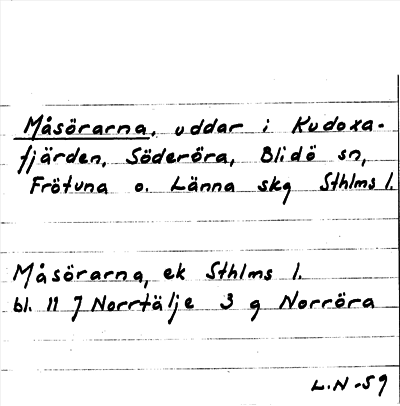 Måsörarna, uddar i Kudoxa-
fjärden, Söderöra, Blidö sn,
Frötuna o. Länna skg Sthlms l.
Måsörarna, ek Sthlms l.
bl. 11 7 Norrtälje 3 g Norröra
L.N-59